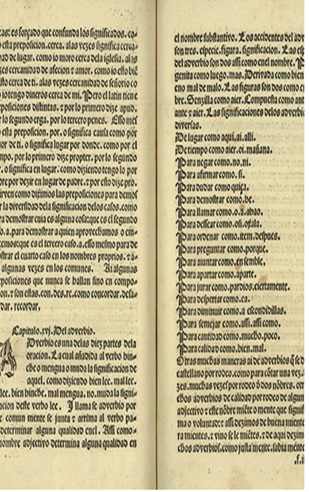 cas: es forçado que confundã los significados. ca-
esta preposicion. cerca. alas vezes significa cerca-
dad de lugar. como io moro cerca dela iglesia. alas
vezes cercanidad de afecion z amor. como io esto biē
sto cerca de ti. alas vezes cercanidad de señorio co
io tengo dineros cerca de mi. Pero el latin tiene
posiciones distintas. z por lo primero dize apud.
lo segundo erga. por lo tercero penes. Esso mes
esta preposicion. por. o significa causa como por
or de ti. o significa lugar por donde. como por el
mpo. por lo primero dize propter. por lo segundo
r. o significa en lugar. como diziendo tengo lo por
re por dezir en lugar de padre. z por esto dize pro.
irven como diximos las preposiciones para demos
la diversidad dela significacion delos casos. como
ra demostrar cuia es alguna cosa que es el segundo
o. a. para demostrar a quien aprovechamos o em-
cemos que es el tercero caso. a. esso mesmo para de
strar el cuarto caso en los nombres proprios. z a-
algunas vezes en los comunes. Ai algunas
posiciones que nunca se hallan sino en compo-
n. z son estas. con. des. re. como concordar. desa-
dar. recordar.
Capitulo.xvj. Del adverbio.
Adverbio es una delas diez partes dela
oracion. La cual añadida al verbo hin-
che o mengua o muda la significacion de
aquel. como diziendo bien lee. mal lee.
lee. bien hinche. mal mengua. no. muda la signi-
cacion deste verbo lee. I llama se adverbio por
comun mente se junta z arrima al verbo pa-
determinar alguna calidad enel. Assi como
nombre adjectivo determina alguna qualidad en
el nombre substantivo. Los accidentes del adv
son tres. especie. figura. significacion. Las es
del adverbio son dos assi como enel nombre. P
genita como luego. mas. Derivada como bien
eno mal de malo. Las figuras son dos como e
bre. Senzilla como aier. Compuesta como ant
ante z aier. Las significaciones delos adverbi
diversas.
De lugar como aqui. ai. alli.
De tiempo como aier. oi. mañana.
Para negar como. no. ni.
Para afirmar como. si.
Para dudar como quiça.
Para demostrar como. he.
Para llamar como. o. a. ahao.
Para dessear como. osi. oxala.
Para ordenar como. item. despues.
Para preguntar como. porque.
Para aiuntar como. en semble.
Para apartar como. aparte.
Para jurar como. pardios. cierta mente.
Para despertar como. ea.
Para diminuir como. a escondidillas.
Para semejar como. assi. assi como.
Para cantidad como. mucho. poco.
Para calidad como. bien. mal.
Otras muchas maneras ai de adverbios q̃ se d
castellano por rodeo. como para cōtar una vez.
zes. muchas vezes por rodeo o dos nōbres. otr
chos adverbios de calidad por rodeo de algun
adjectivo z este nōbre miēte o mente que signifi
ma o voluntad: z assi dezimos de buena miente
ra mientes. z vino se le miētes. z de aqui dezimo
chos adverbios. como justa mente. sabia mente